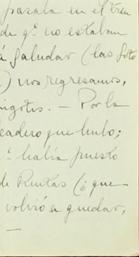 pasaba en el tren
de qº no estaban
á saludar (las foto
) nos regresamos,
ngotis. — Por la
eadero que hubo;
º había puesto
de Ruitas (ó que
volvió a quedar,
—